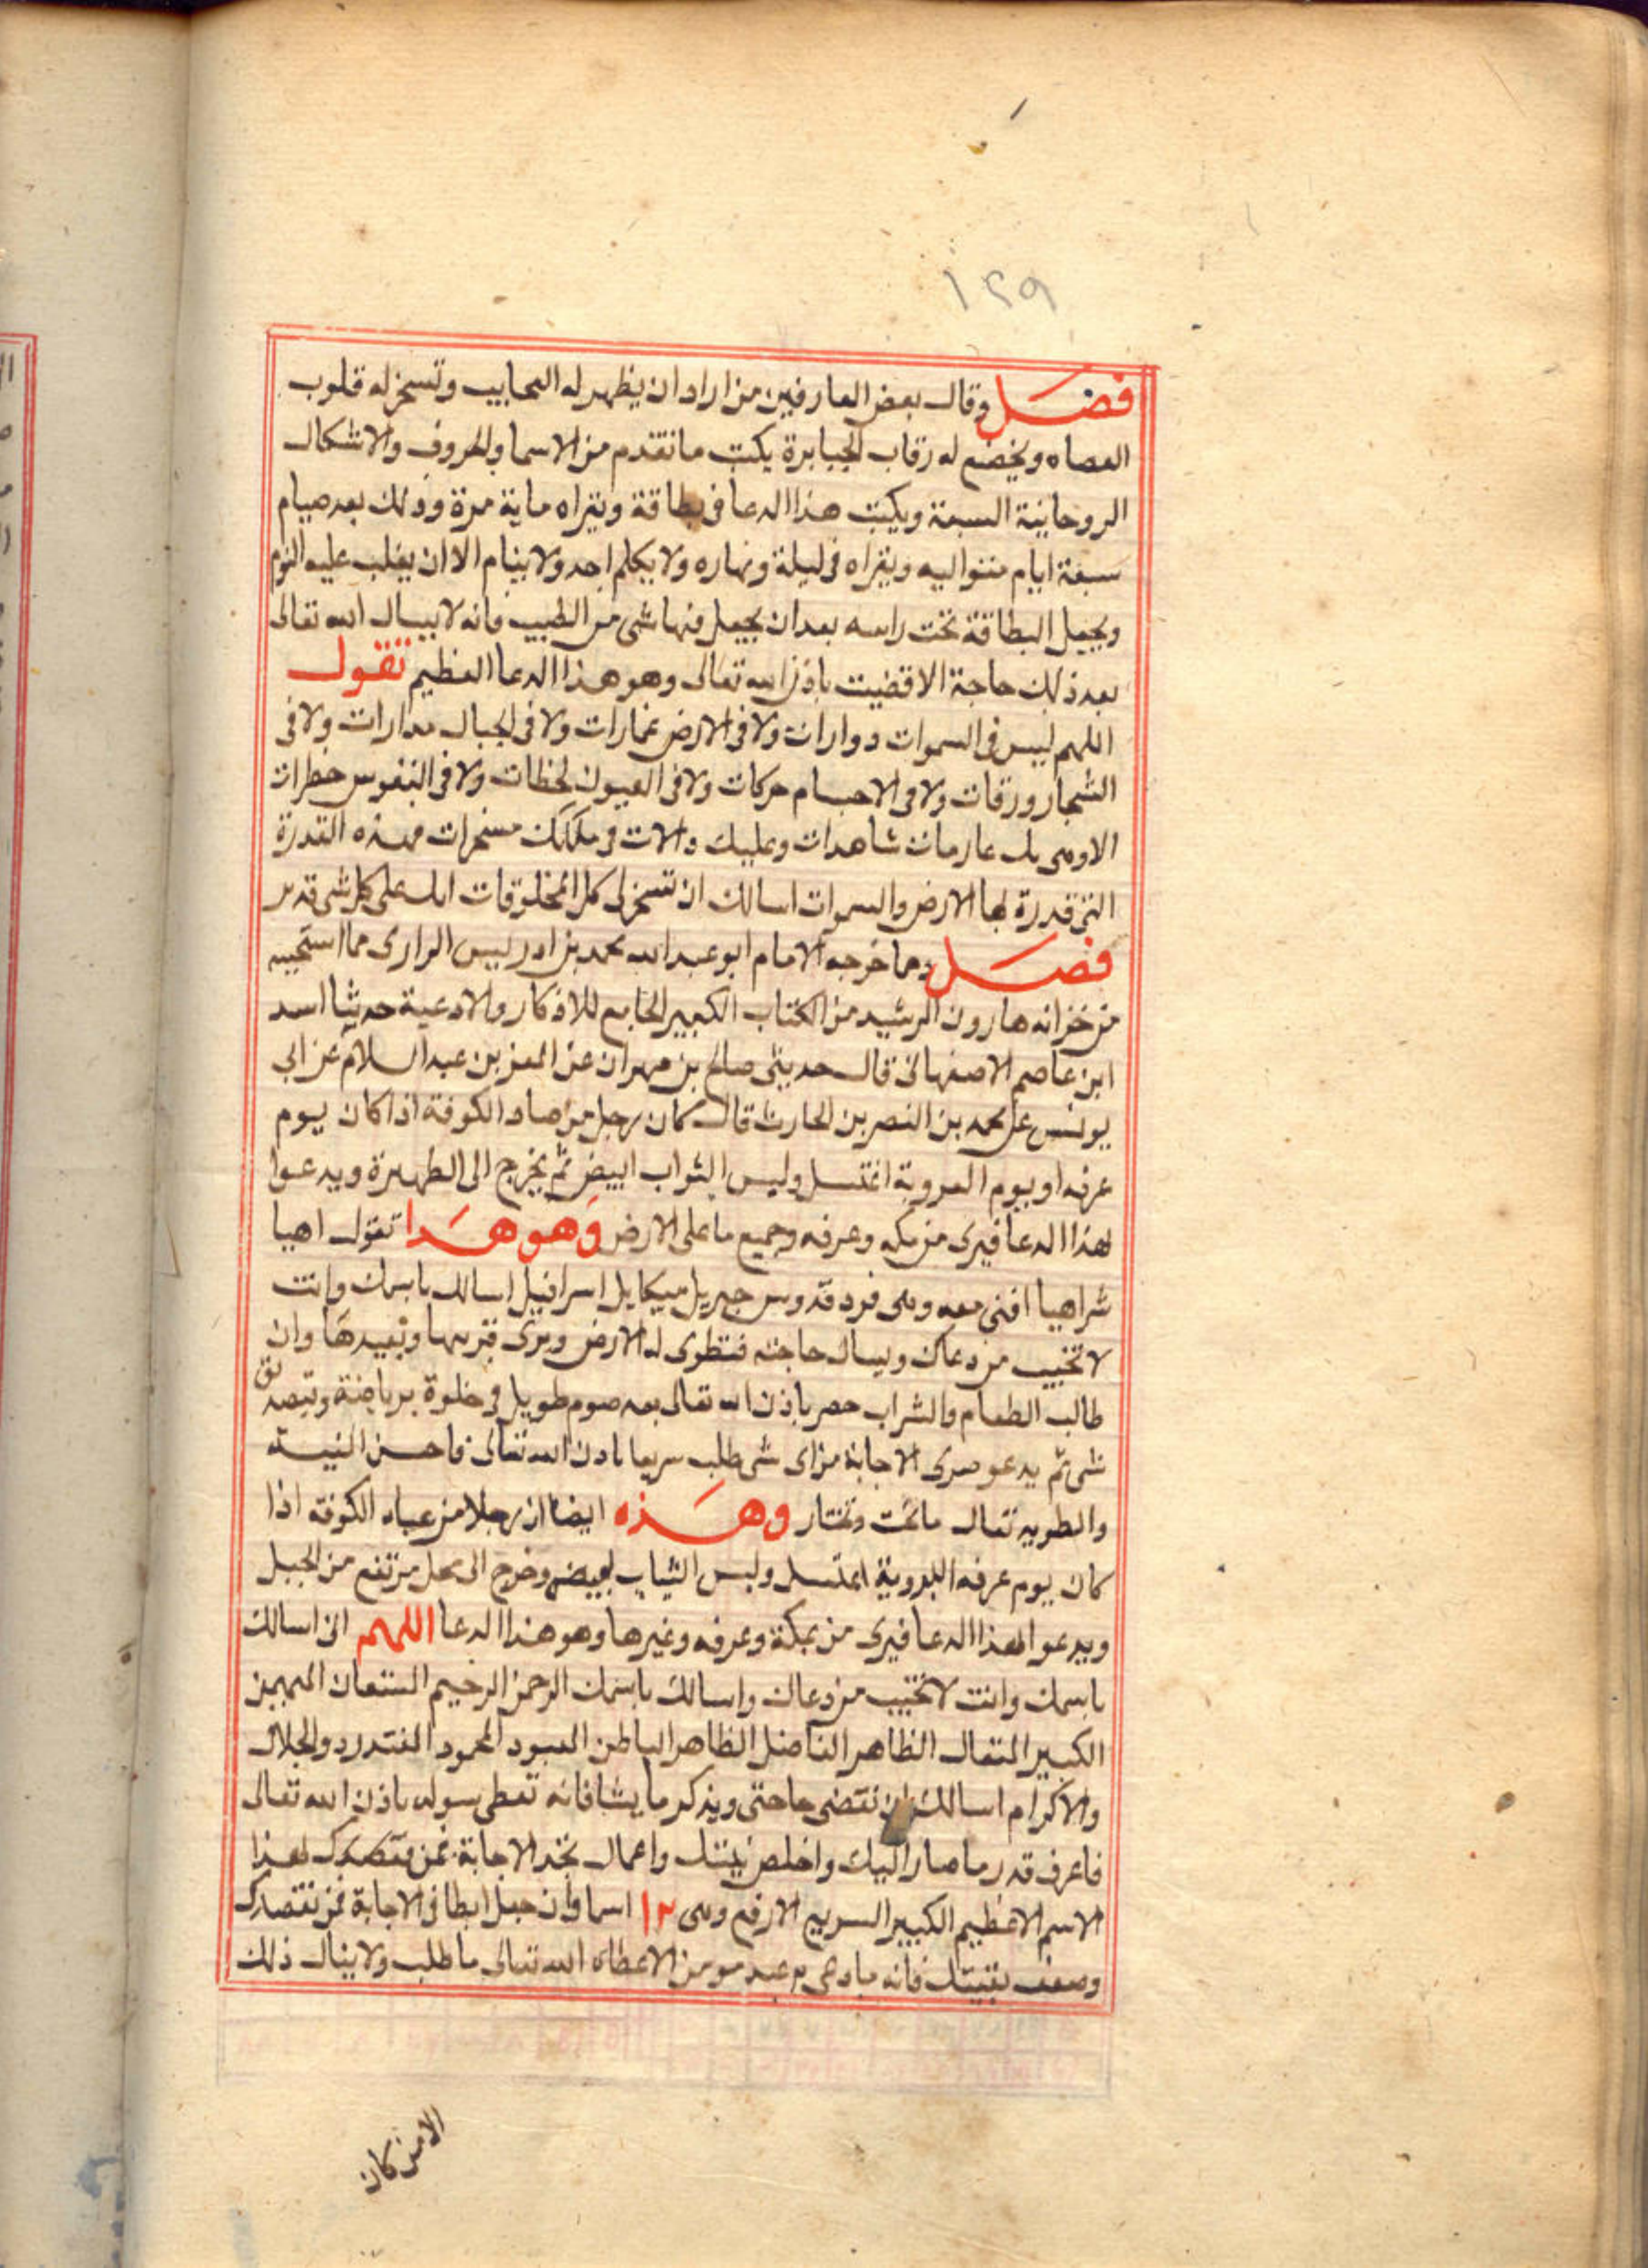 ١٢٩
فصل وقال بعض العارفين من اراد ان يظهر له العجايب وتسخر له قلوب
العصاه ويخضع له رقاب الجبابرة يكتب ما تقدم من الاسما والحروف والاشكال
الروحانية السبعة ويكتب هذا الدعا في بطاقة ويقراه ماية مرة وذلك بعد صيام
سبعة ايام متواليه ويقراه في ليلة ونهاره ولا يكلم احد ولا ينام الا ان يغلب عليه النوم
ويجعل البطاقة تحت راسه بعد ان يجعل فيها شى من الطيب فانه لا يسال الله تعالى
بعد ذلك حاجة الا قضيت باذن الله تعالى وهو هذا الدعا العظيم تقول
اللهم ليس في السموات دوارات ولا في الارض غمارات ولا في الجبال مدارات ولا في
الشجار ورقات ولا في الاجسام حركات ولا في العيون لحظات ولا في النفوس خطرات
الا وهى بك عارفات شاهدات وعليك دالات في ملكك مسخرات فبهذه القدرة
التى قدرة بها الارض والسموات اسالك ان تسخر لى كل المخلوقات انك على كل شى قدير
فصل ومما خرجه الامام ابو عبد الله محمد بن ادريس الرازى مما استجيبه
من خزانه هارون الرشيد من الكتاب الكبير الجامع للاذكار والادعية حدثنا اسد
ابن عاصم الاصفهانى قال حديثى صالح بن مهران عن المعز بن عبد السلام عن ابى
يونس عن محمد بن النصر بن الحارث قال كان رجل من عباد الكوفة اذا كان يوم
عرفه او يوم العروبة اغتسل ولبس الثواب ابيض ثم يخرج الى الظهيرة ويدعوا
بهذا الدعا فيرى من مكه وعرفه وجميع ما على الارض وهو هذا تقول اهيا
شراهيا افنى معه وهى فرد قدوس جبريل ميكايل اسرافيل اسالك باسمك وانت
لا تخيب من دعاك ويسال حاجته فتطوى له الارض ويرى قريبها وبعيدها وان
طالب الطعام والشراب حصر باذن الله تعالى بعد صوم طويل في خلوة برياضة ويتصدق
شى ثم يدعو صرى الاجابة من اى شى طلب سريعا باذن الله تعالى فاحسن النية
والطويه تنال ما تحت وتختار وهذه ايضا ان رجلا من عباد الكوفه اذا
كان يوم عرفه البدوية اغتسل ولبس الثياب لبيض وخرج الى محل مرتفع من الجبل
ويدعو بهذا الدعا فيرى من بمكة وعرفه وغيرها وهو هذا الدعا اللهم انى اسالك
باسمك وانت لا تخيب من دعاك واسالك باسمك الرحمن الرحيم المستعان المهيمن
الكبير المتعال الظاهر الفاضل الظاهر الباطن المعبود المحمود المقتدر ذو الجلال
والاكرام اسالك ان تقضى حاجتى ويذكر ما يشا فانه تعطى سوله باذن الله تعالى
فاعرف قدر ما صار اليك واخلص نيتك واعمال تجد الاجابة فمن مقصدك بهذا
الاسم الاعظيم الكبير السريع الارفع وهى ١٢ اسما وان حبل ابطا في الاجابة فمن نقصدك
وضعف يقينك فانه ما دعى به عبد مومن الا عطاه الله تعالى ما طلب ولا ينال ذلك
الا من كان